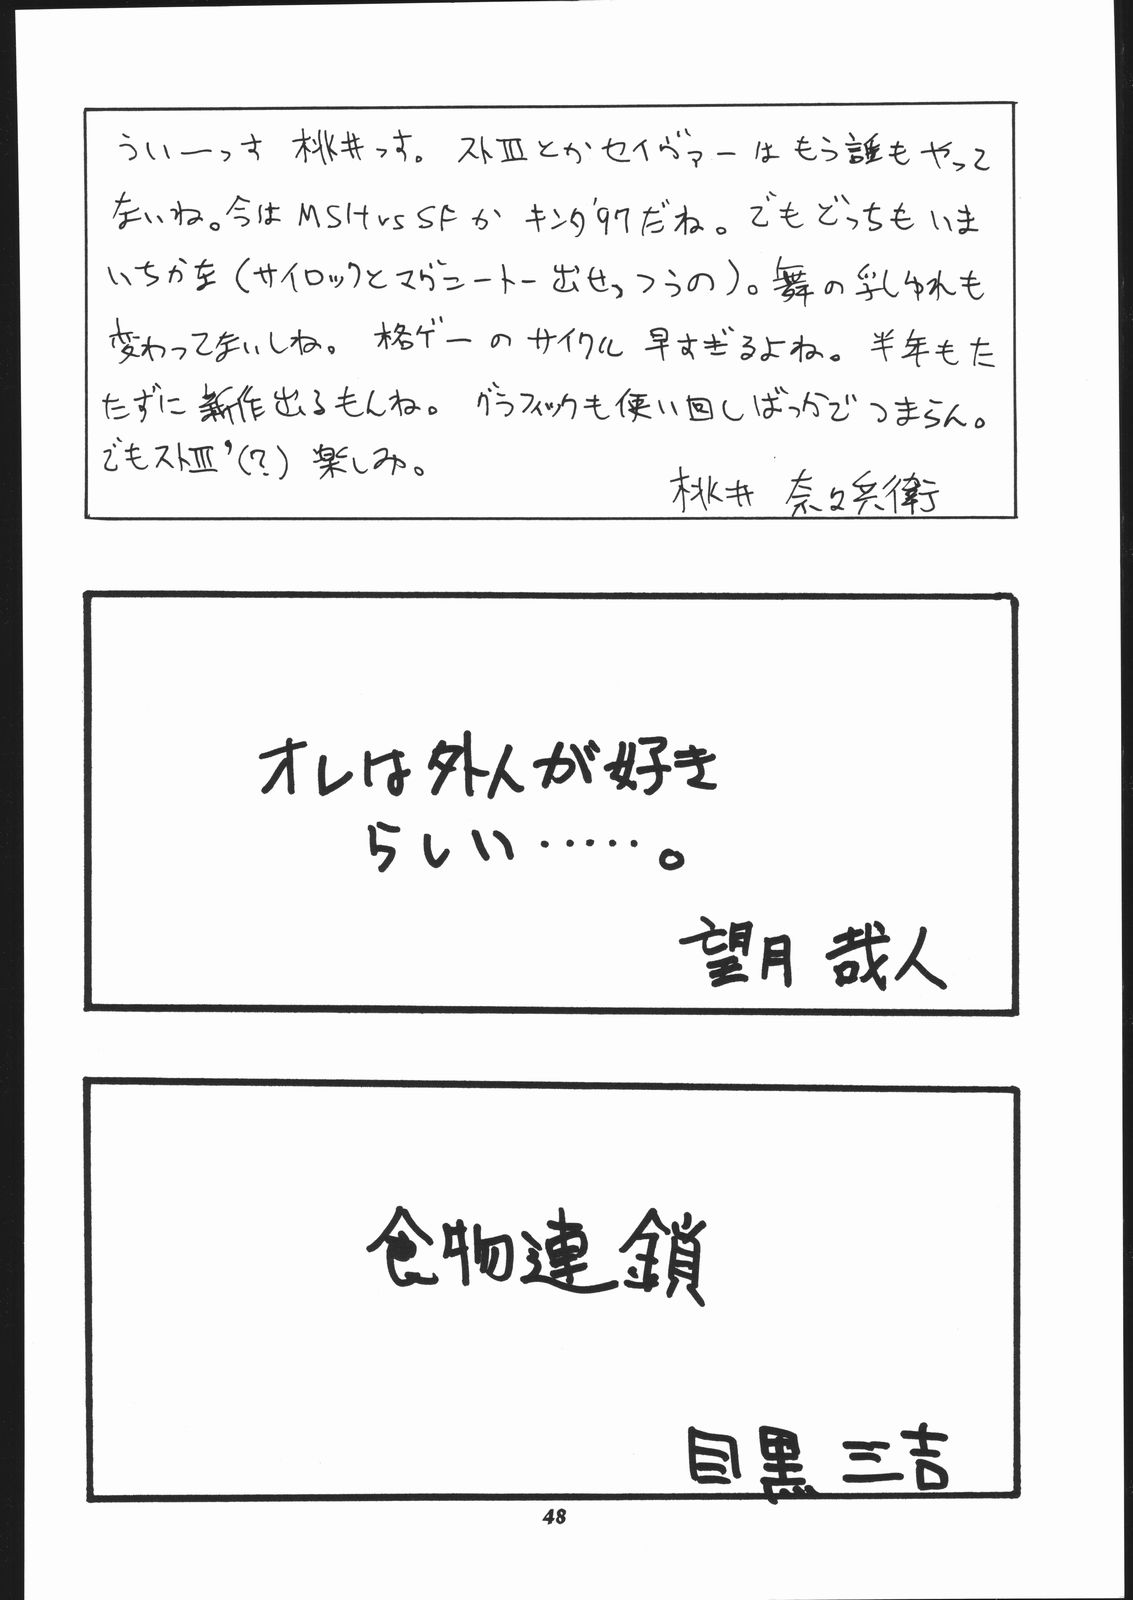 ういーっす 桃井っす。ストⅢとかセイヴァーはもう誰もやって
ないね。今はMSHvsSFかキング'97だね。でもどっちもいま
いちかな(サイロックとマグニートー出せっつうの)。舞の乳しゅれも
変わってないしね。格ゲーのサイクル早すぎるよね。半年もた
たずに新作出るもんね。グラフィックも使い回しばっかでつまらん。
でもストⅢ'(?)楽しみ。
桃井 奈々兵衛
オレは外人が好き
らしい・・・・・。
望月 哉人
食物連鎖
目黒 三吉
48